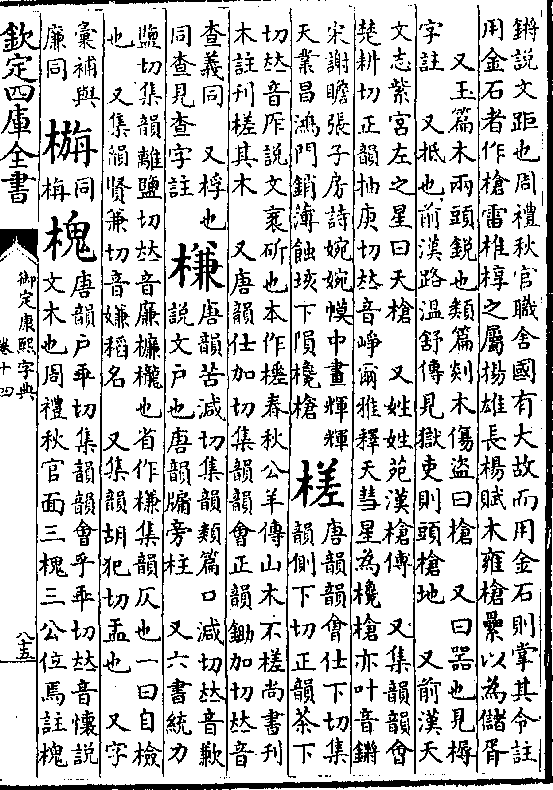 鏘說文距也周禮秋官職舍國有大故而用金石則掌其令註
用金石者作槍雷椎椁之屬揚雄長楊賦木雍槍纍以為儲胥
又玉篇木兩頭銳也類篇剡木傷盜曰槍　又曰器也見樳
字註　又抵也前漢路溫舒傳見獄吏則頭槍地　又前漢天
文志紫宮左之星曰天槍　又姓姓苑漢槍傳　又集韻韻會
楚耕切正韻抽庚切𠀤音崢爾雅釋天彗星為欃槍亦叶音鏘
宋謝瞻張子房詩婉婉幙中畫輝輝
天業昌鴻門銷薄蝕垓下隕欃槍
槎
唐韻韻會仕下切集
韻側下切正韻茶下
切𠀤音厏說文衺斫也本作槎春秋公羊傳山木不槎尚書刊
木註刊槎其木　又唐韻仕加切集韻韻會正韻鋤加切𠀤音
查義同　又桴也
同查見查字註
槏
唐韻苦減切集韻類篇口減切𠀤音歉
說文戶也唐韻牖旁柱　又六書統力
鹽切集韻離鹽切𠀤音廉槏櫳也省作槏集韻仄也一曰自檢
也　又集韻賢兼切音嫌稻名　又集韻胡犯切盂也　又字
彙補與
廉同
㮙
同
栴
槐
唐韻戶乖切集韻韻會乎乖切𠀤音懷說
文木也周禮秋官面三槐三公位焉註槐
欽定四庫全書
御定康熙字典
卷十四
八十五